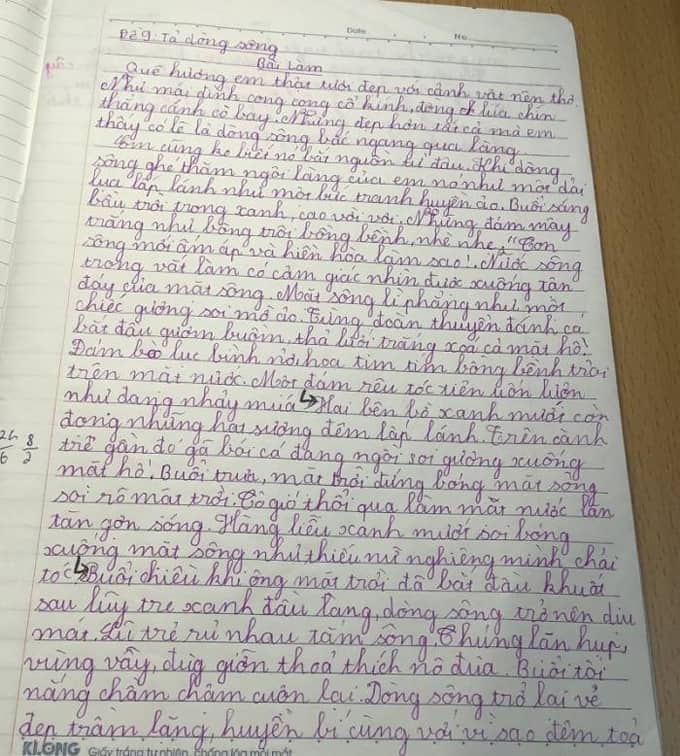 Date No
Đề 9: Tả dòng sông
Bài làm
Quê hương em thật tươi đẹp với cảnh vật nên thơ.
Như mái đình cong cong cổ kính, đồng lúa chín
thẳng cánh cò bay. Nhưng đẹp hơn tất cả mà em
thấy có lẽ là dòng sông bắc ngang qua làng.
Em cũng ko biết nó bắt nguồn từ đâu. Khi dòng
sông ghé thăm ngôi làng của em nó như một dải
lụa lấp lánh như một bức tranh huyền ảo. Buổi sáng
bầu trời trong xanh, cao vời vợi. Những đám mây
trắng như bông trôi bồng bềnh, nhè nhẹ. "Con
sông mới ấm áp và hiền hòa làm sao!. Nước sông
trong vắt làm có cảm giác nhìn được xuống tận
đáy của mặt sông. Mặt sông lì phẳng như một
chiếc gương soi mờ ảo. Từng đoàn thuyền đánh cá
bắt đầu giươm buồm, thả lưới trắng xoá cả mặt hồ.
Đám bèo lục bình nở hoa tim tím bồng bềnh trôi
trên mặt nước. Một đám rêu tóc tiên uốn lượn
như đang nhảy múa ↳ Hai bên bờ xanh mướt còn
đọng những hạt sương đêm lấp lánh. Trên cành
trê gần đó gã bói cá đang ngồi soi gương xuống
mặt hồ. Buổi trưa, mặt trời đứng bóng mặt sông
soi rõ mặt trời. Cô gió thổi qua làm mặt nước lăn
tăn gợn sóng. Hàng liễu xanh mướt soi bóng
xuống mặt sông như thiếu nữ nghiêng mình chải
tóc ↳ Buổi chiều khi ông mặt trời đã bắt đầu khuất
sau lũy tre xanh đầu làng, dòng sông trở nên dịu
mát. Lũ trẻ rủ nhau tắm sông. Chúng lặn hụp,
vùng vẫy, đùa giỡn thoả thích nô đùa. Buổi tối
nắng chầm chậm cuộn lại. Dòng sông trở lại vẻ
đẹp trầm lặng, huyền bí cùng với vì sao đêm toả
KLONG Giấy trắng tự nhiên, chống lóa mỏi mắt